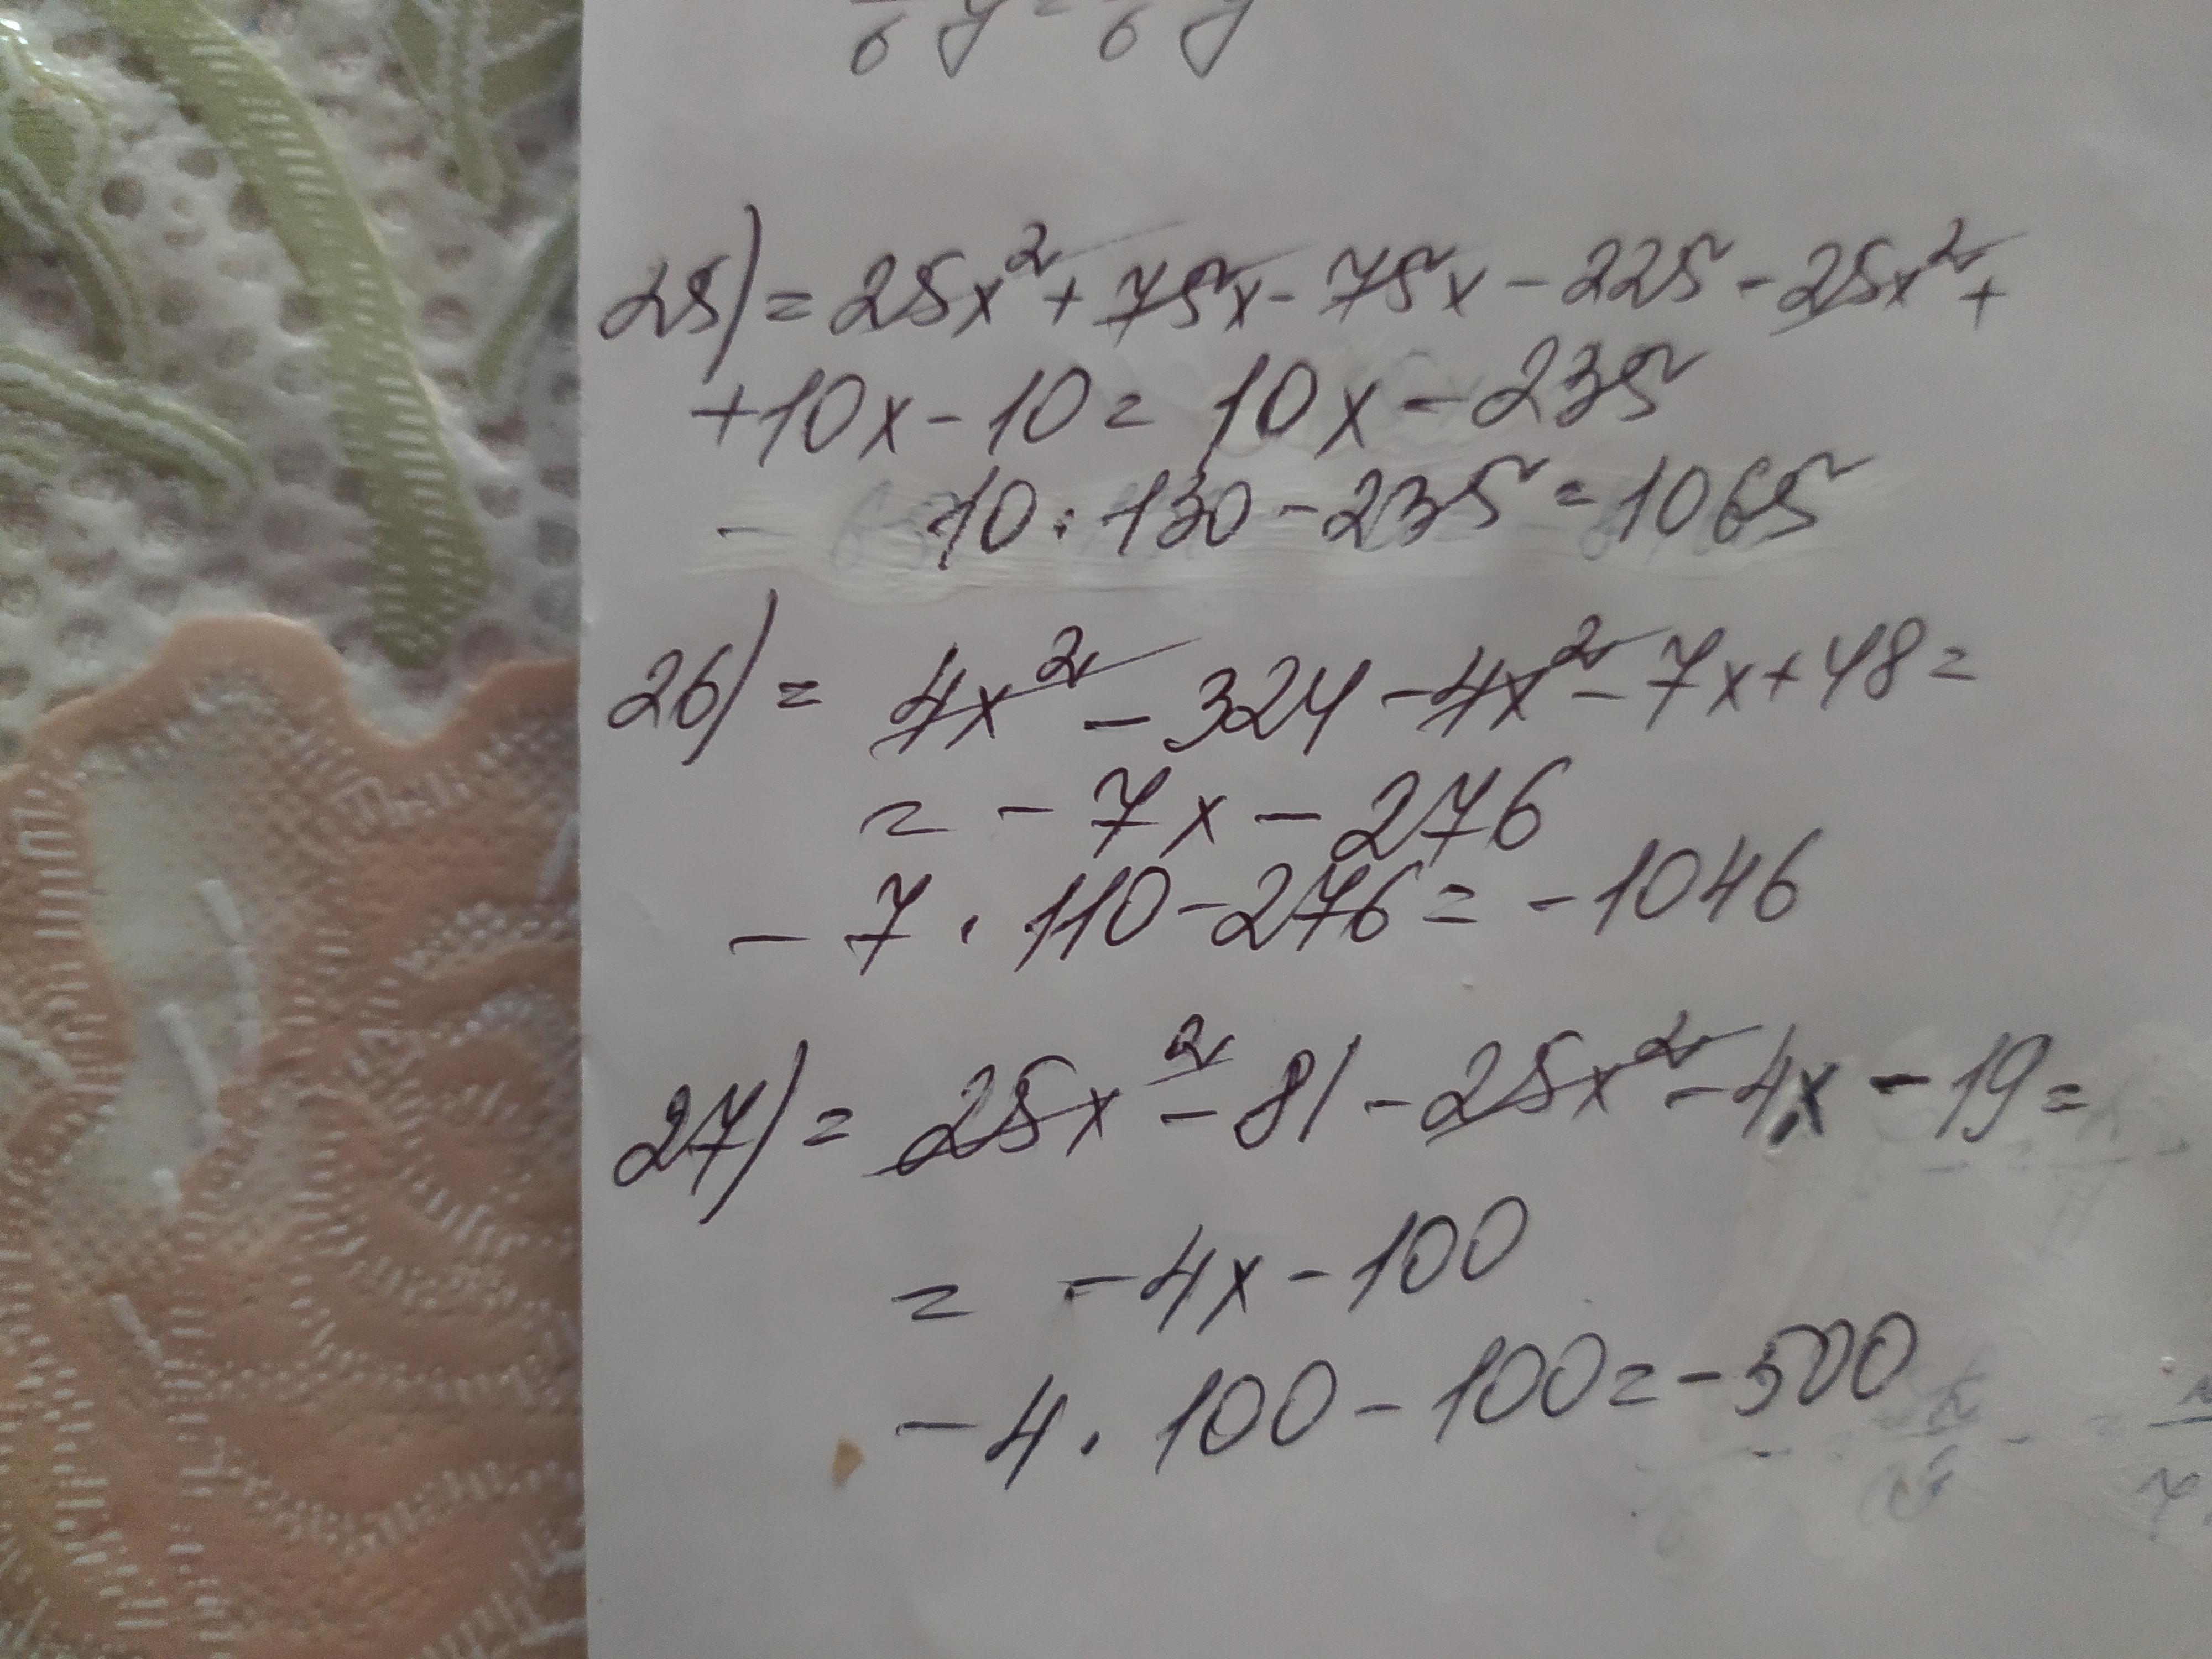 6 y = 6 y
25) = 25x² + 75x - 75x - 225 - 25x² +
+ 10x - 10 = 10x - 235
- 10 · 130 - 235 = 1065
26) = 4x² - 324 - 4x² - 7x + 48 =
= - 7x - 276
- 7 · 110 - 276 = - 1046
27) = 25x² - 81 - 25x² - 4x - 19 =
= - 4x - 100
- 4 · 100 - 100 = - 500